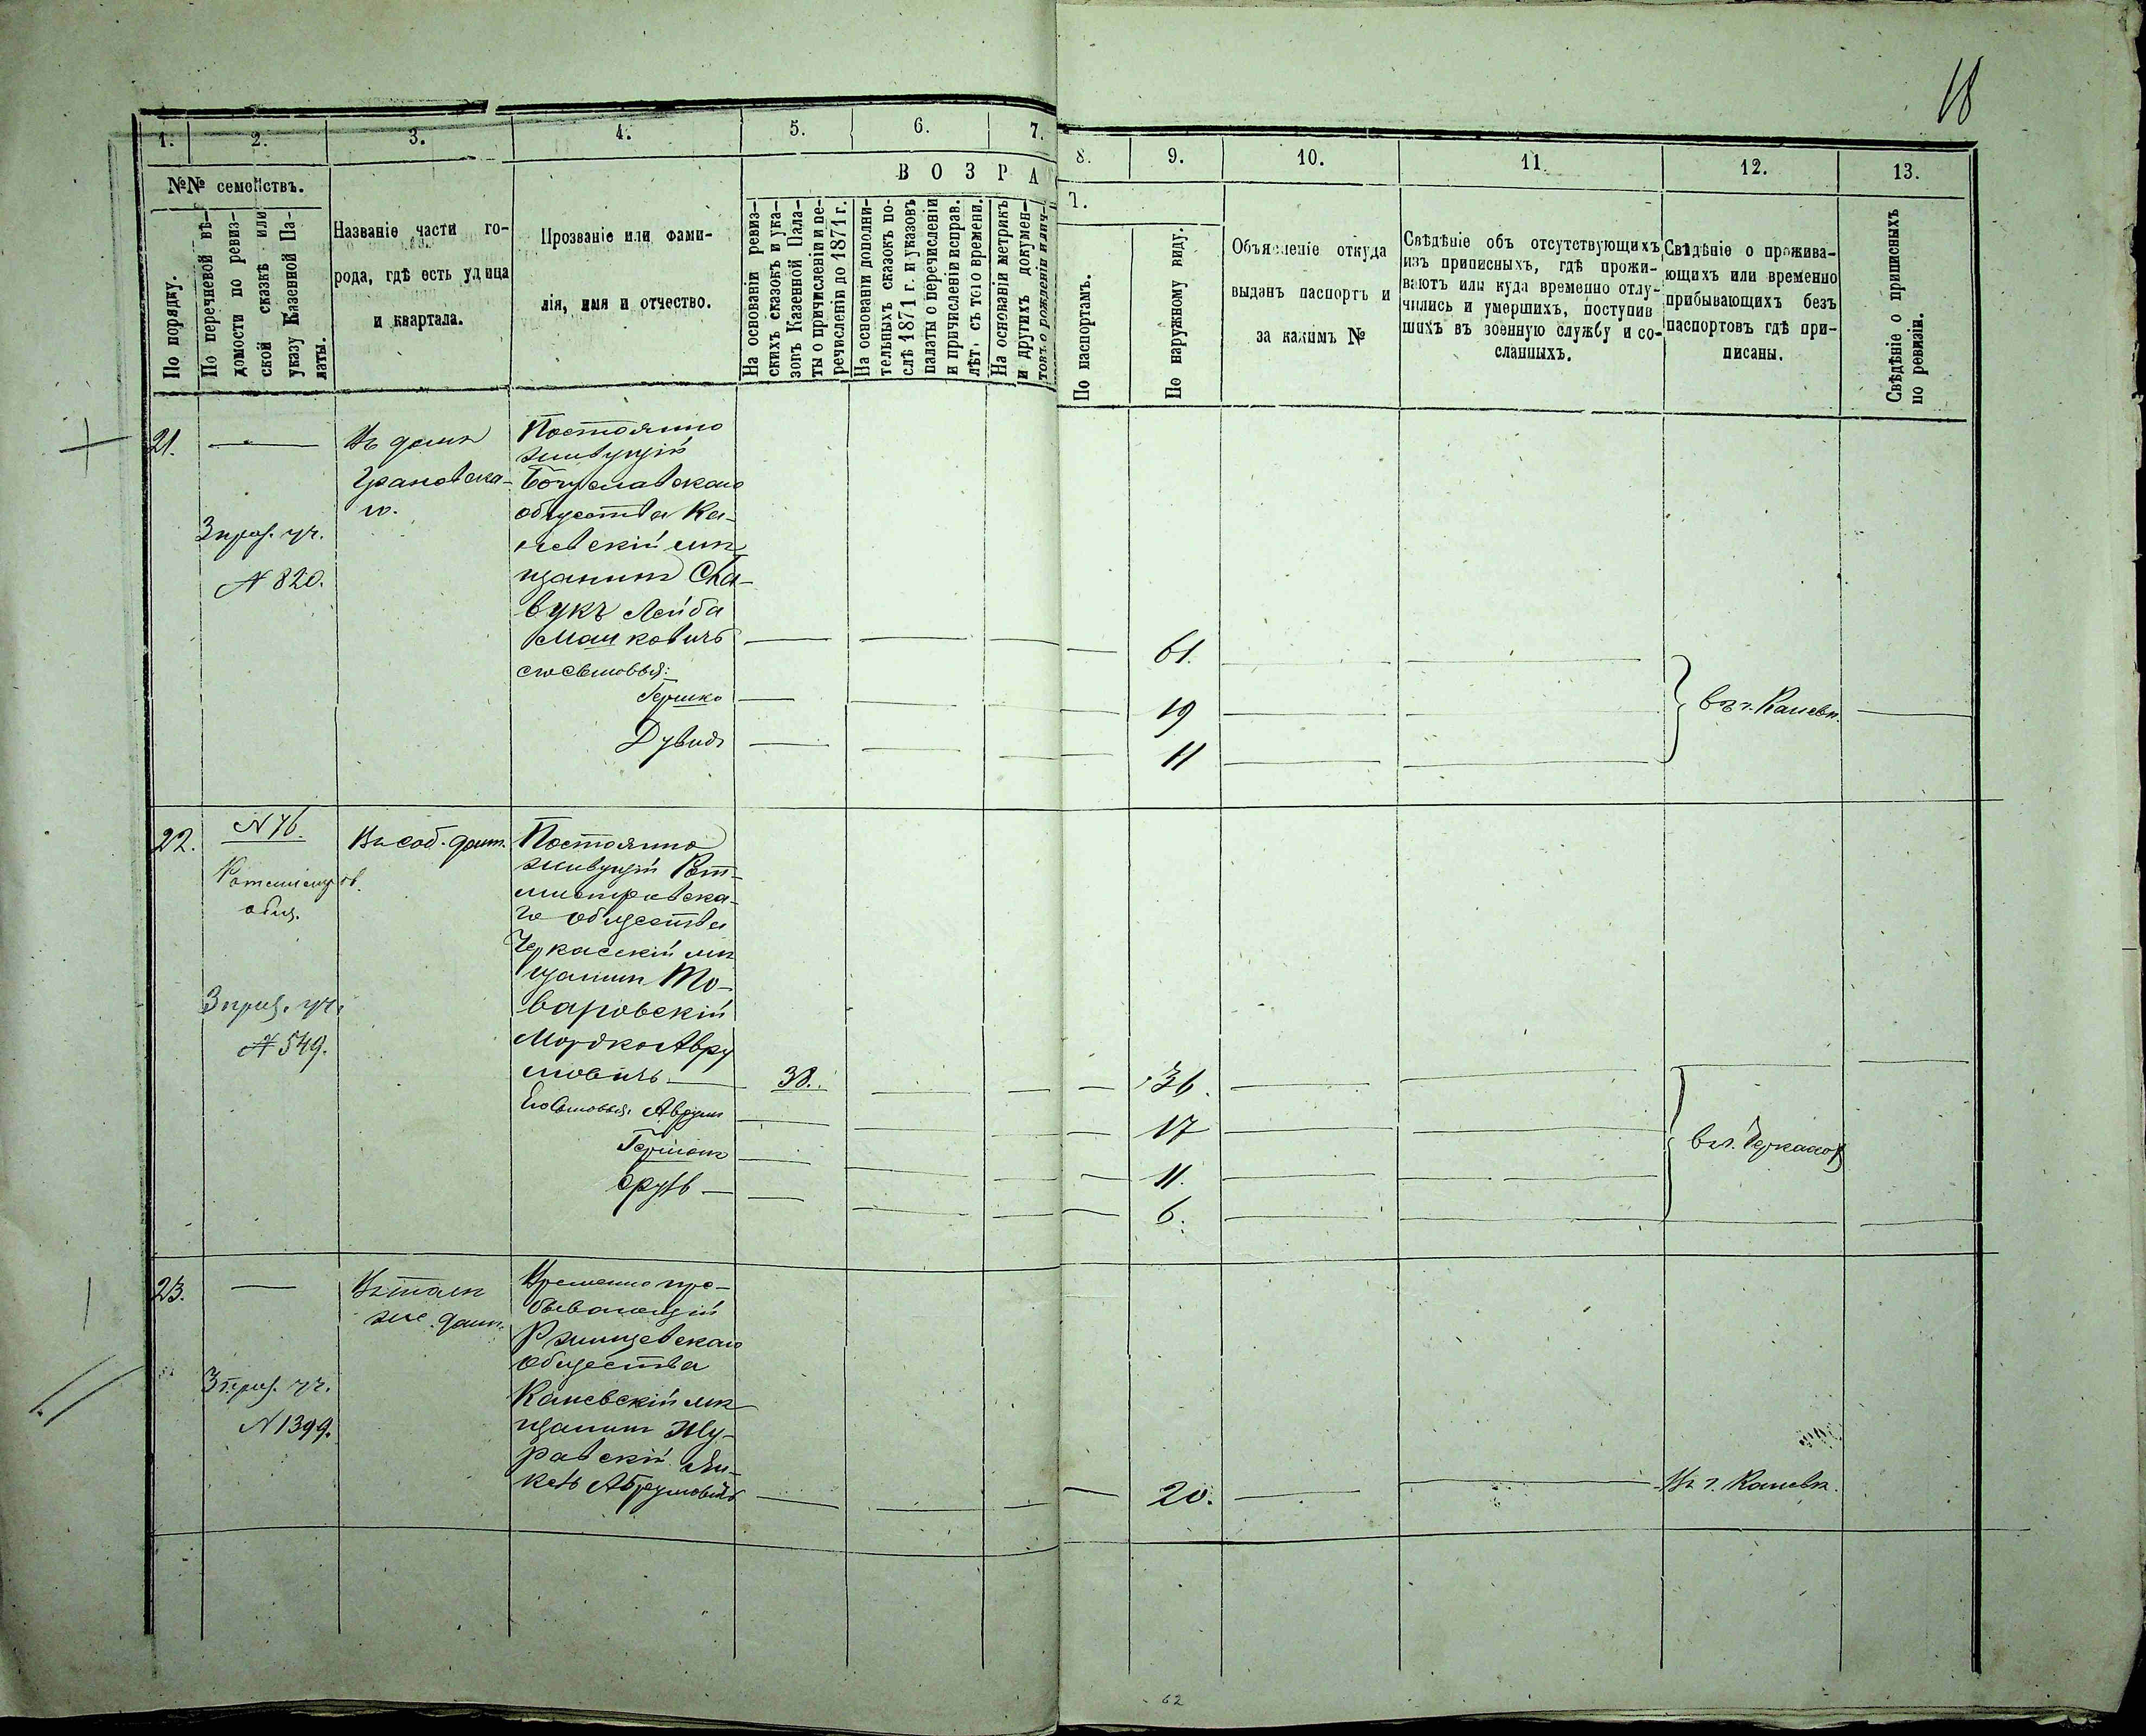 18
1.
2.
3.
4.
5.
6.
7.
8.
9.
10.
11.
12.
13.
№№ семействъ.
По порядку.
По перечневой вѣ-
домости по ревиз-
ской сказкѣ или
указу Казенной Па-
латы.
Названіе части го-
рода, гдѣ есть улица
и квартала.
Прозваніе или фами-
лія, имя и отчество.
ВОЗРА
Т.
На основаніи ревиз-
скихъ сказокъ и ука-
зовъ Казенной Пала-
ты о причисленіи и пе-
речисленіи до 1871 г.
На основаніи дополни-
тельныхъ сказокъ по-
слѣ 1871 г. и указовъ
палаты о перечисленіи
и причисленіи исправ.
лѣт. съ того времени.
На основаніи метрикъ
и другихъ докумен-
товъ о рожденіи и лич-
По паспортамъ.
По наружному виду.
Объясленіе откуда
выданъ паспортъ и
за какимъ №
Свѣдѣніе объ отсутствующихъ
изъ приписныхъ, гдѣ прожи-
ваютъ или куда временно отлу-
чились и умершихъ, поступив
шихъ въ военную службу и со-
сланныхъ.
Свѣдѣніе о прожива-
ющихъ или временно
прибывающихъ безъ
паспортовъ гдѣ при-
писаны.
Свѣдѣніе о приписныхъ
по ревизіи.
21.
3 приз. уч.
№ 820.
Въ домѣ
Грановска-
го.
Постоянно
живущій
Богуславскаго
общества Ка-
невскій мѣ
щанинъ
вукъ Лейба
Машковичъ
61.
его сыновья:
Гершко
19
Дувидъ
11
въ г. Каневѣ.
22.
№ 76.
Ротмистров.
общ.
3 приз. уч.
№ 549.
Въ соб. домѣ.
Постоянно
живущій Рот-
мистровска-
го общества
Черкасскій мѣ
щанинъ То-
варовскій
Мордко Авру
мовичъ
38.
36.
Его сыновья: Аврумъ
17
Гершонъ
11.
Срулъ
6.
въ г. Черкасах
23.
3 приз. уч.
№ 1399.
Въ томъ
же домѣ.
Временно про-
бывающій
Ржищевскаго
общества
Каневскій мѣ
щанинъ Жу-
равскій Ян-
кель Абрумовичъ
20.
Въ г. Каневѣ.
62